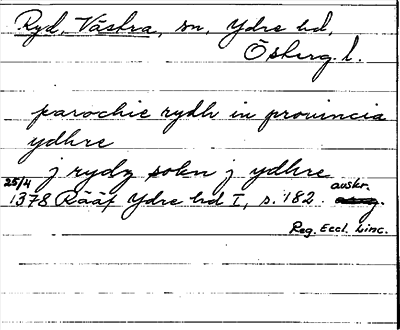 Ryd, Västra, sn, Ydre hd,
Österg. l.
parochie rydh in prouincia
ydhre
j rydz sokn j ydhre
25/4 1378 Rääf Ydre hd I, s. 182. avskr.
Reg. Eccl. Linc.